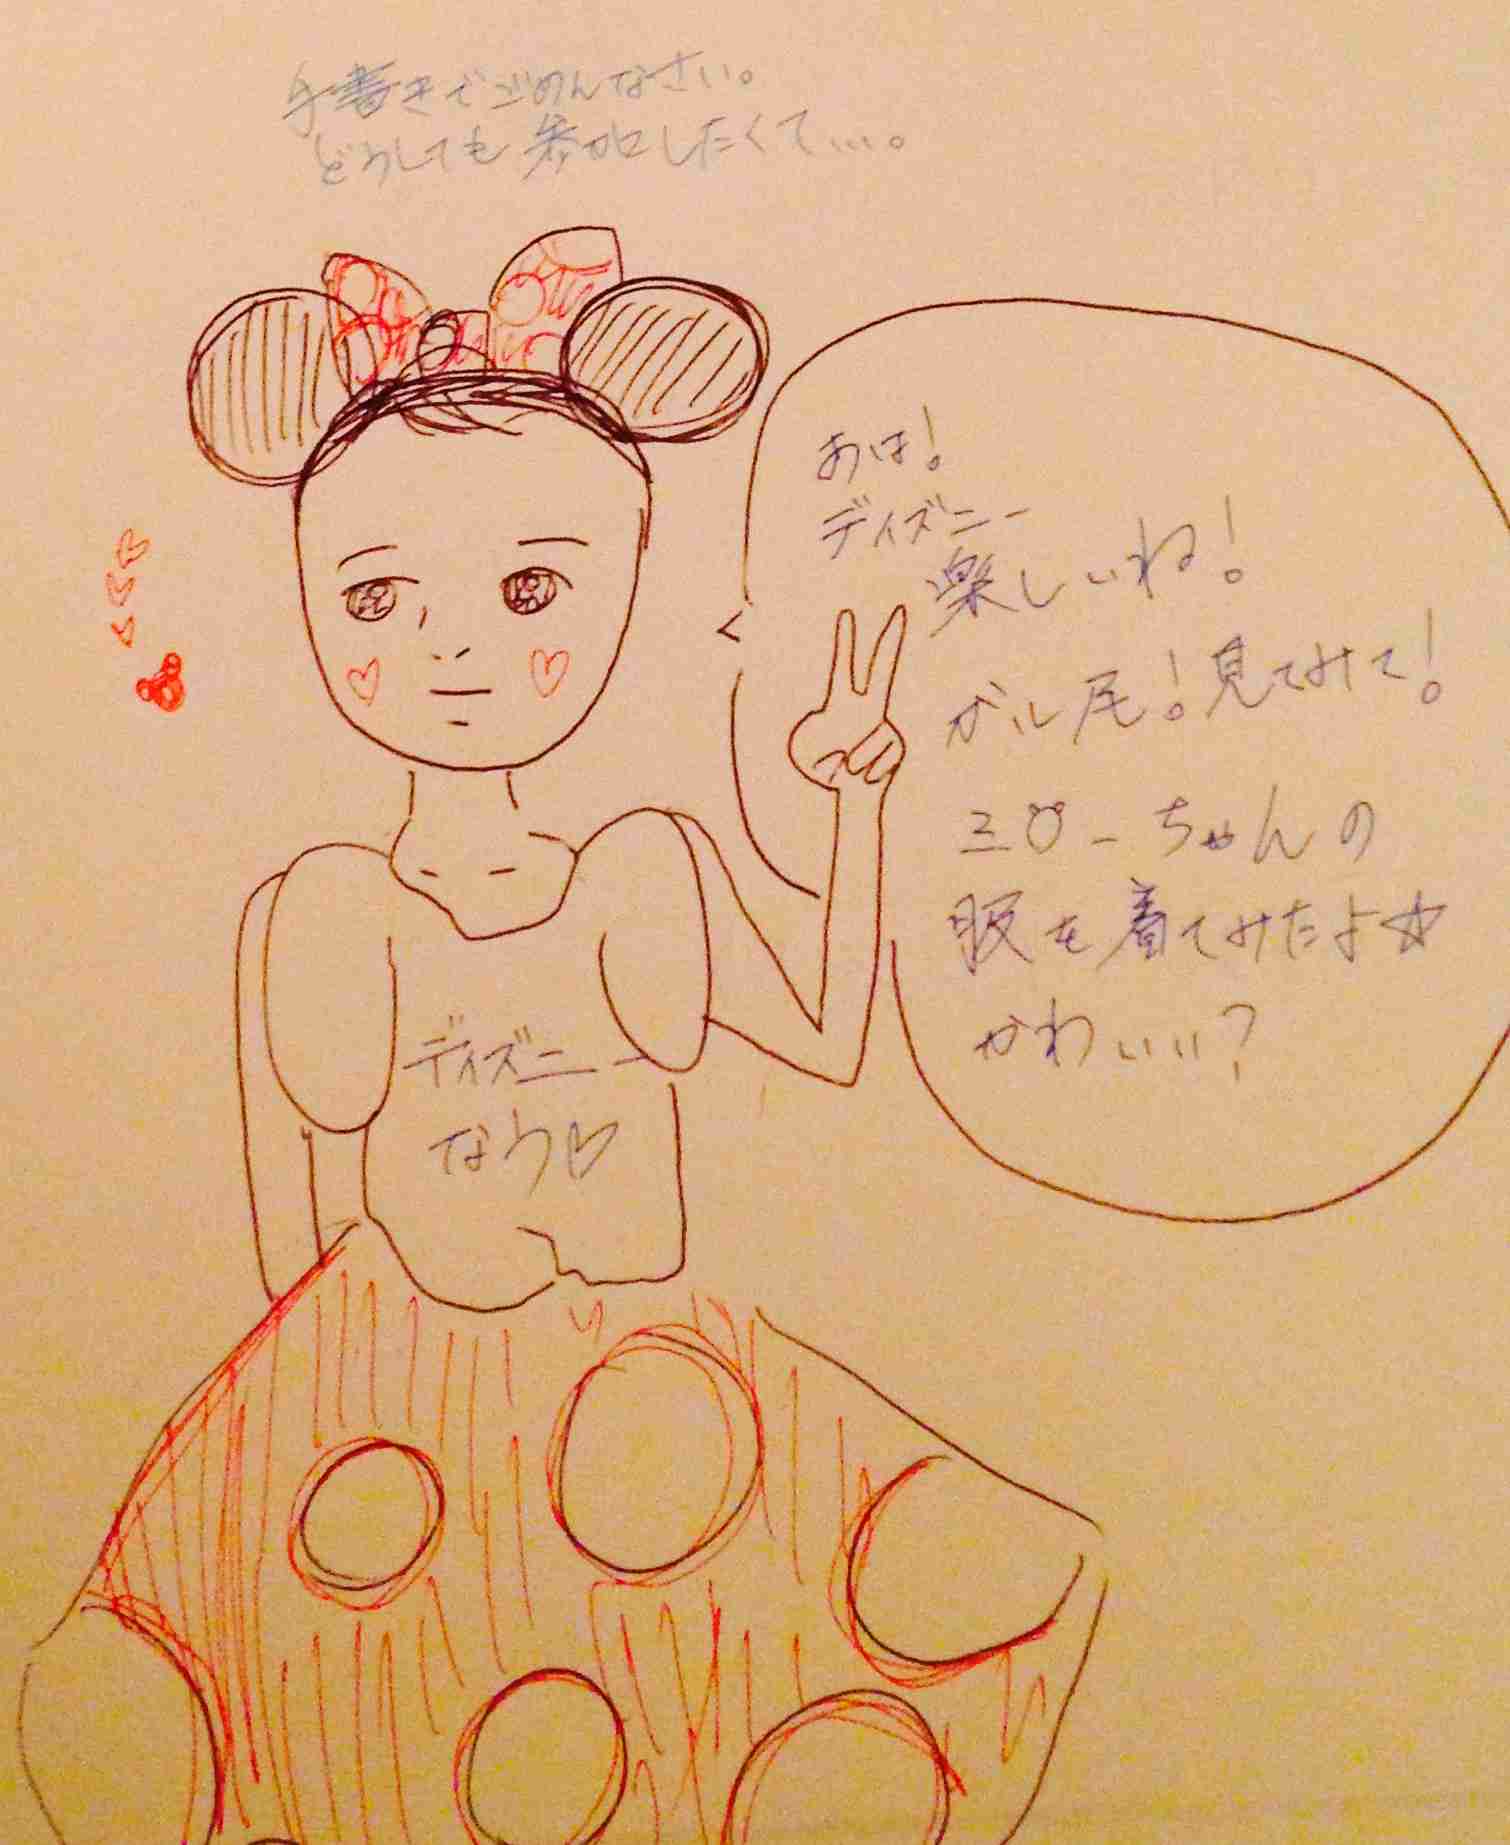 手書きでごめんなさい。
どうしても参加したくて…。
あは!
ディズニー
楽しいね!
ガル尾!見てみて!
ーちゃんの
服を着てみたよ☆
かわいい?
ディズニー
なう♡